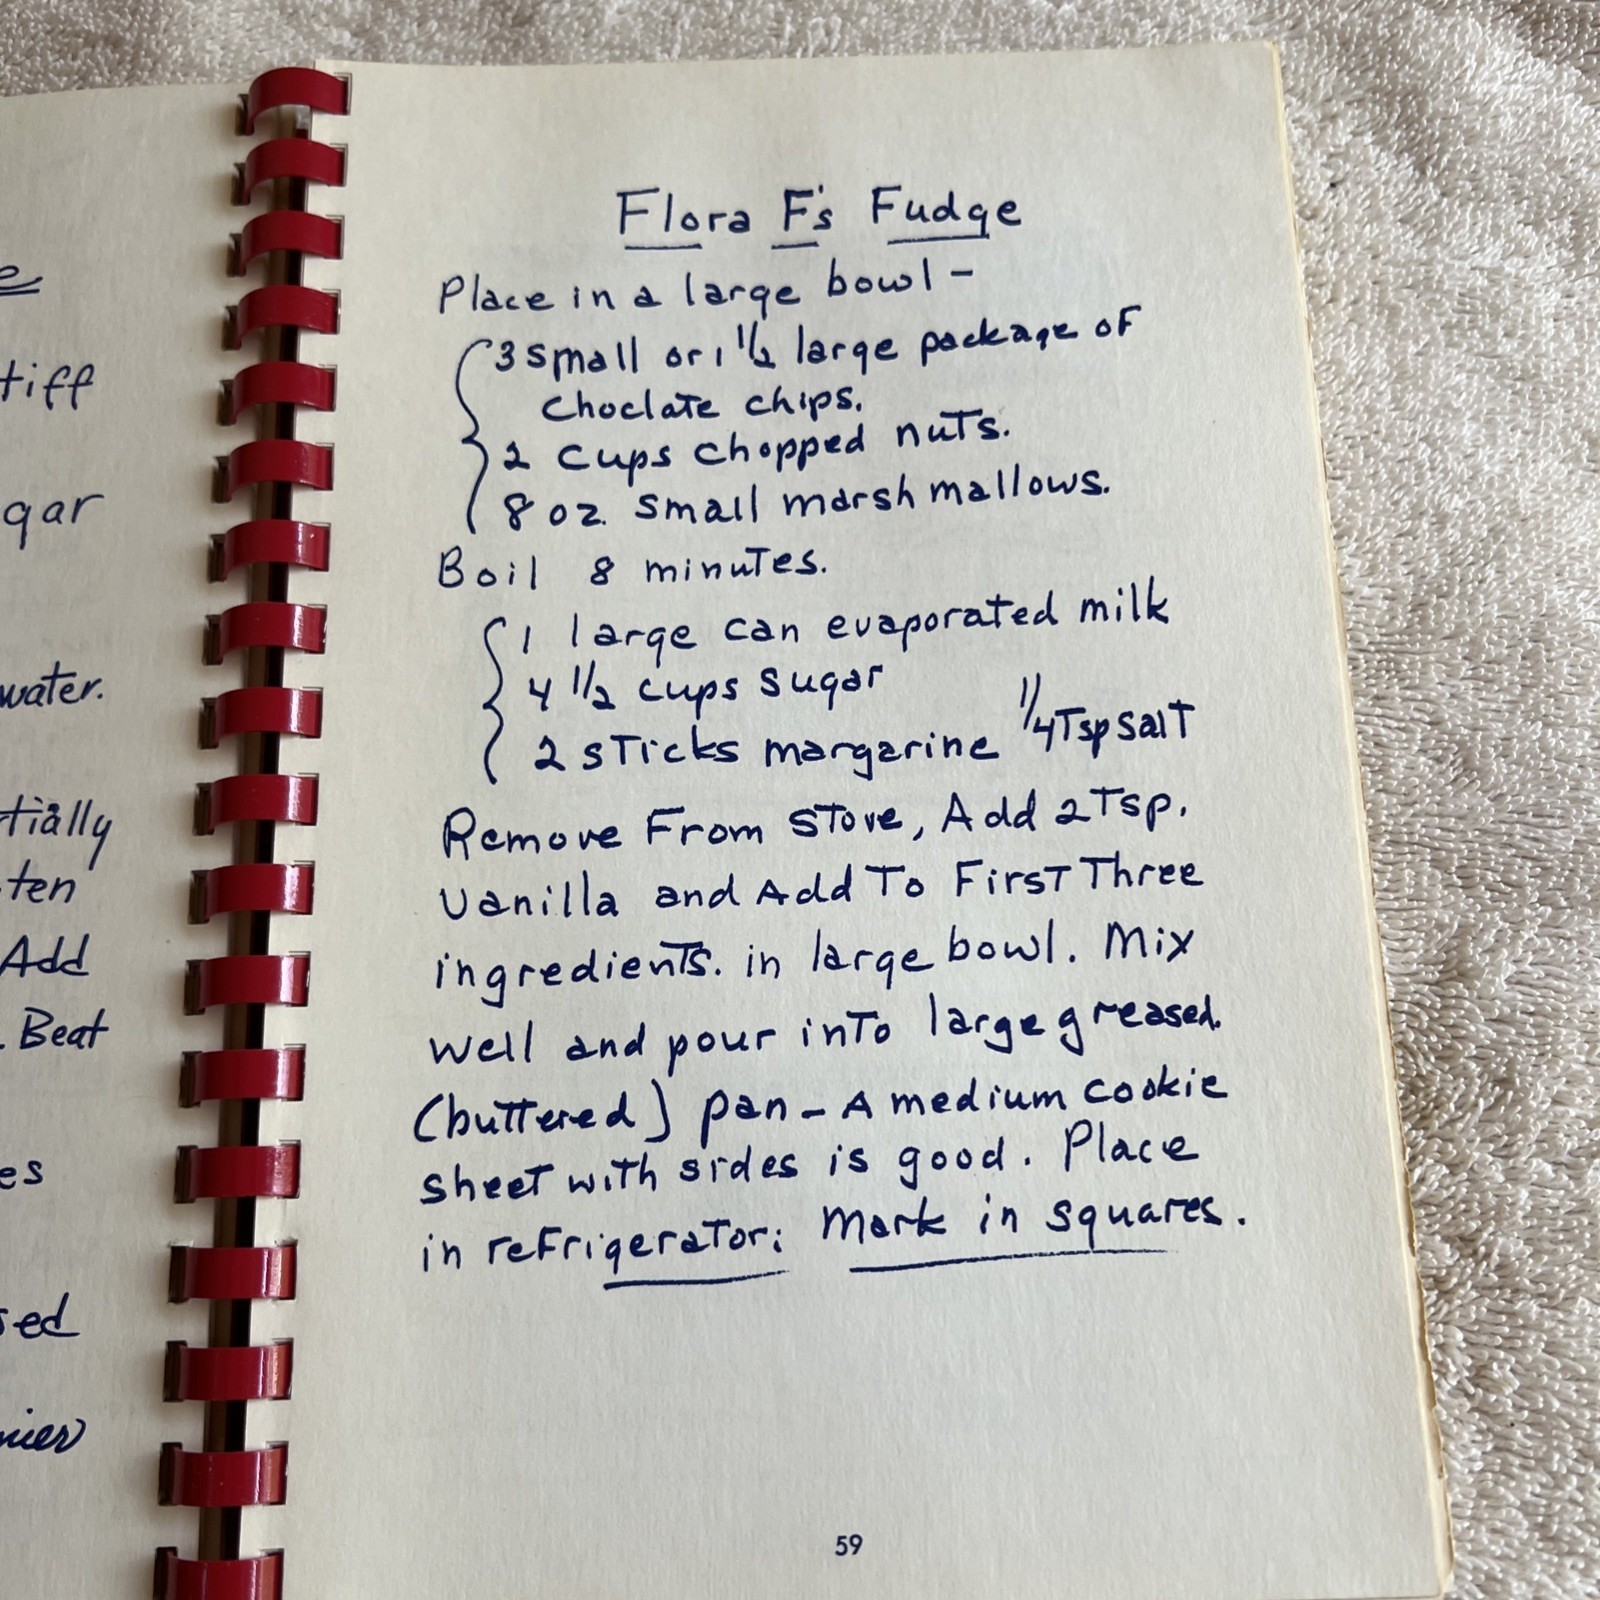 e
tiff
gar
water.
rtially
ten
Add
. Beat
es
sed
nier
Flora F's Fudge
Place in a large bowl -
3 small or 1 1/2 large package of
choclate chips.
2 cups chopped nuts.
8 oz. small marshmallows.
Boil 8 minutes.
1 large can evaporated milk
4 1/2 cups sugar
2 sticks margarine 1/4 Tsp salt
Remove From stove, Add 2 Tsp.
vanilla and Add To First Three
ingredients. in large bowl. Mix
well and pour into large greased.
(buttered) pan - A medium cookie
sheet with sides is good. Place
in refrigerator; Mark in squares.
59